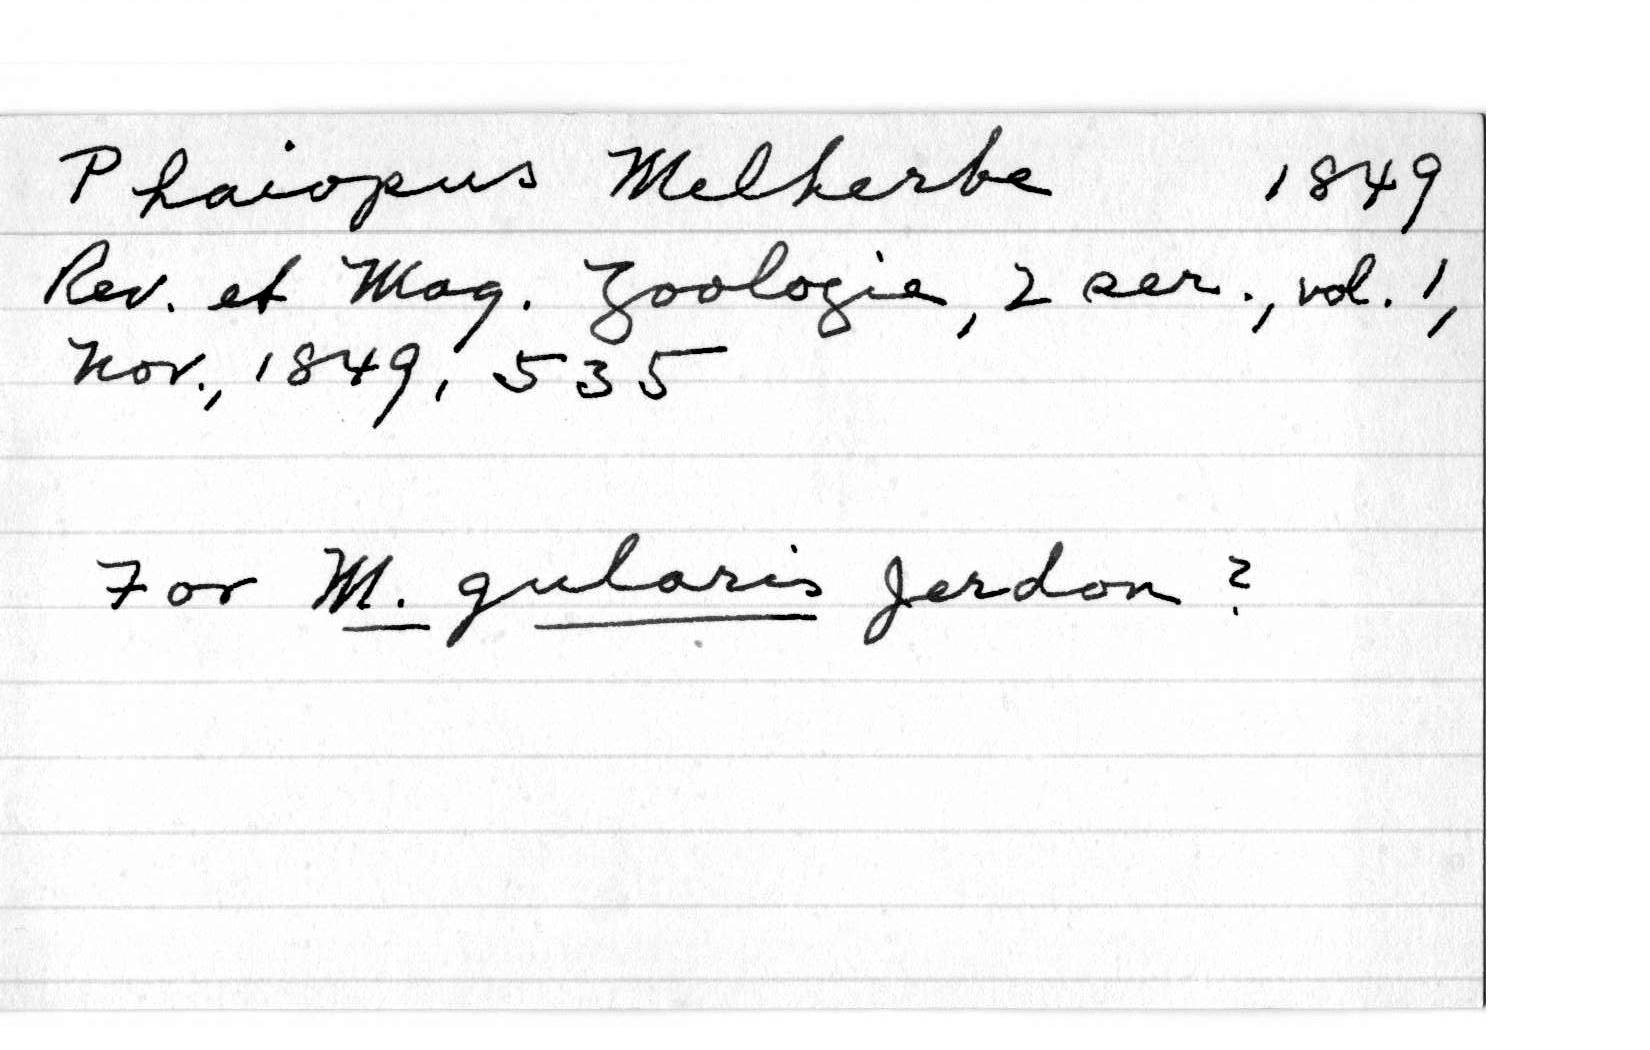 Phaiopus Melherbe 1849
Rev. et Mag. Zoologie, 2 ser., vol. 1,
Nov., 1849, 535
For M. gularis Jerdon ?